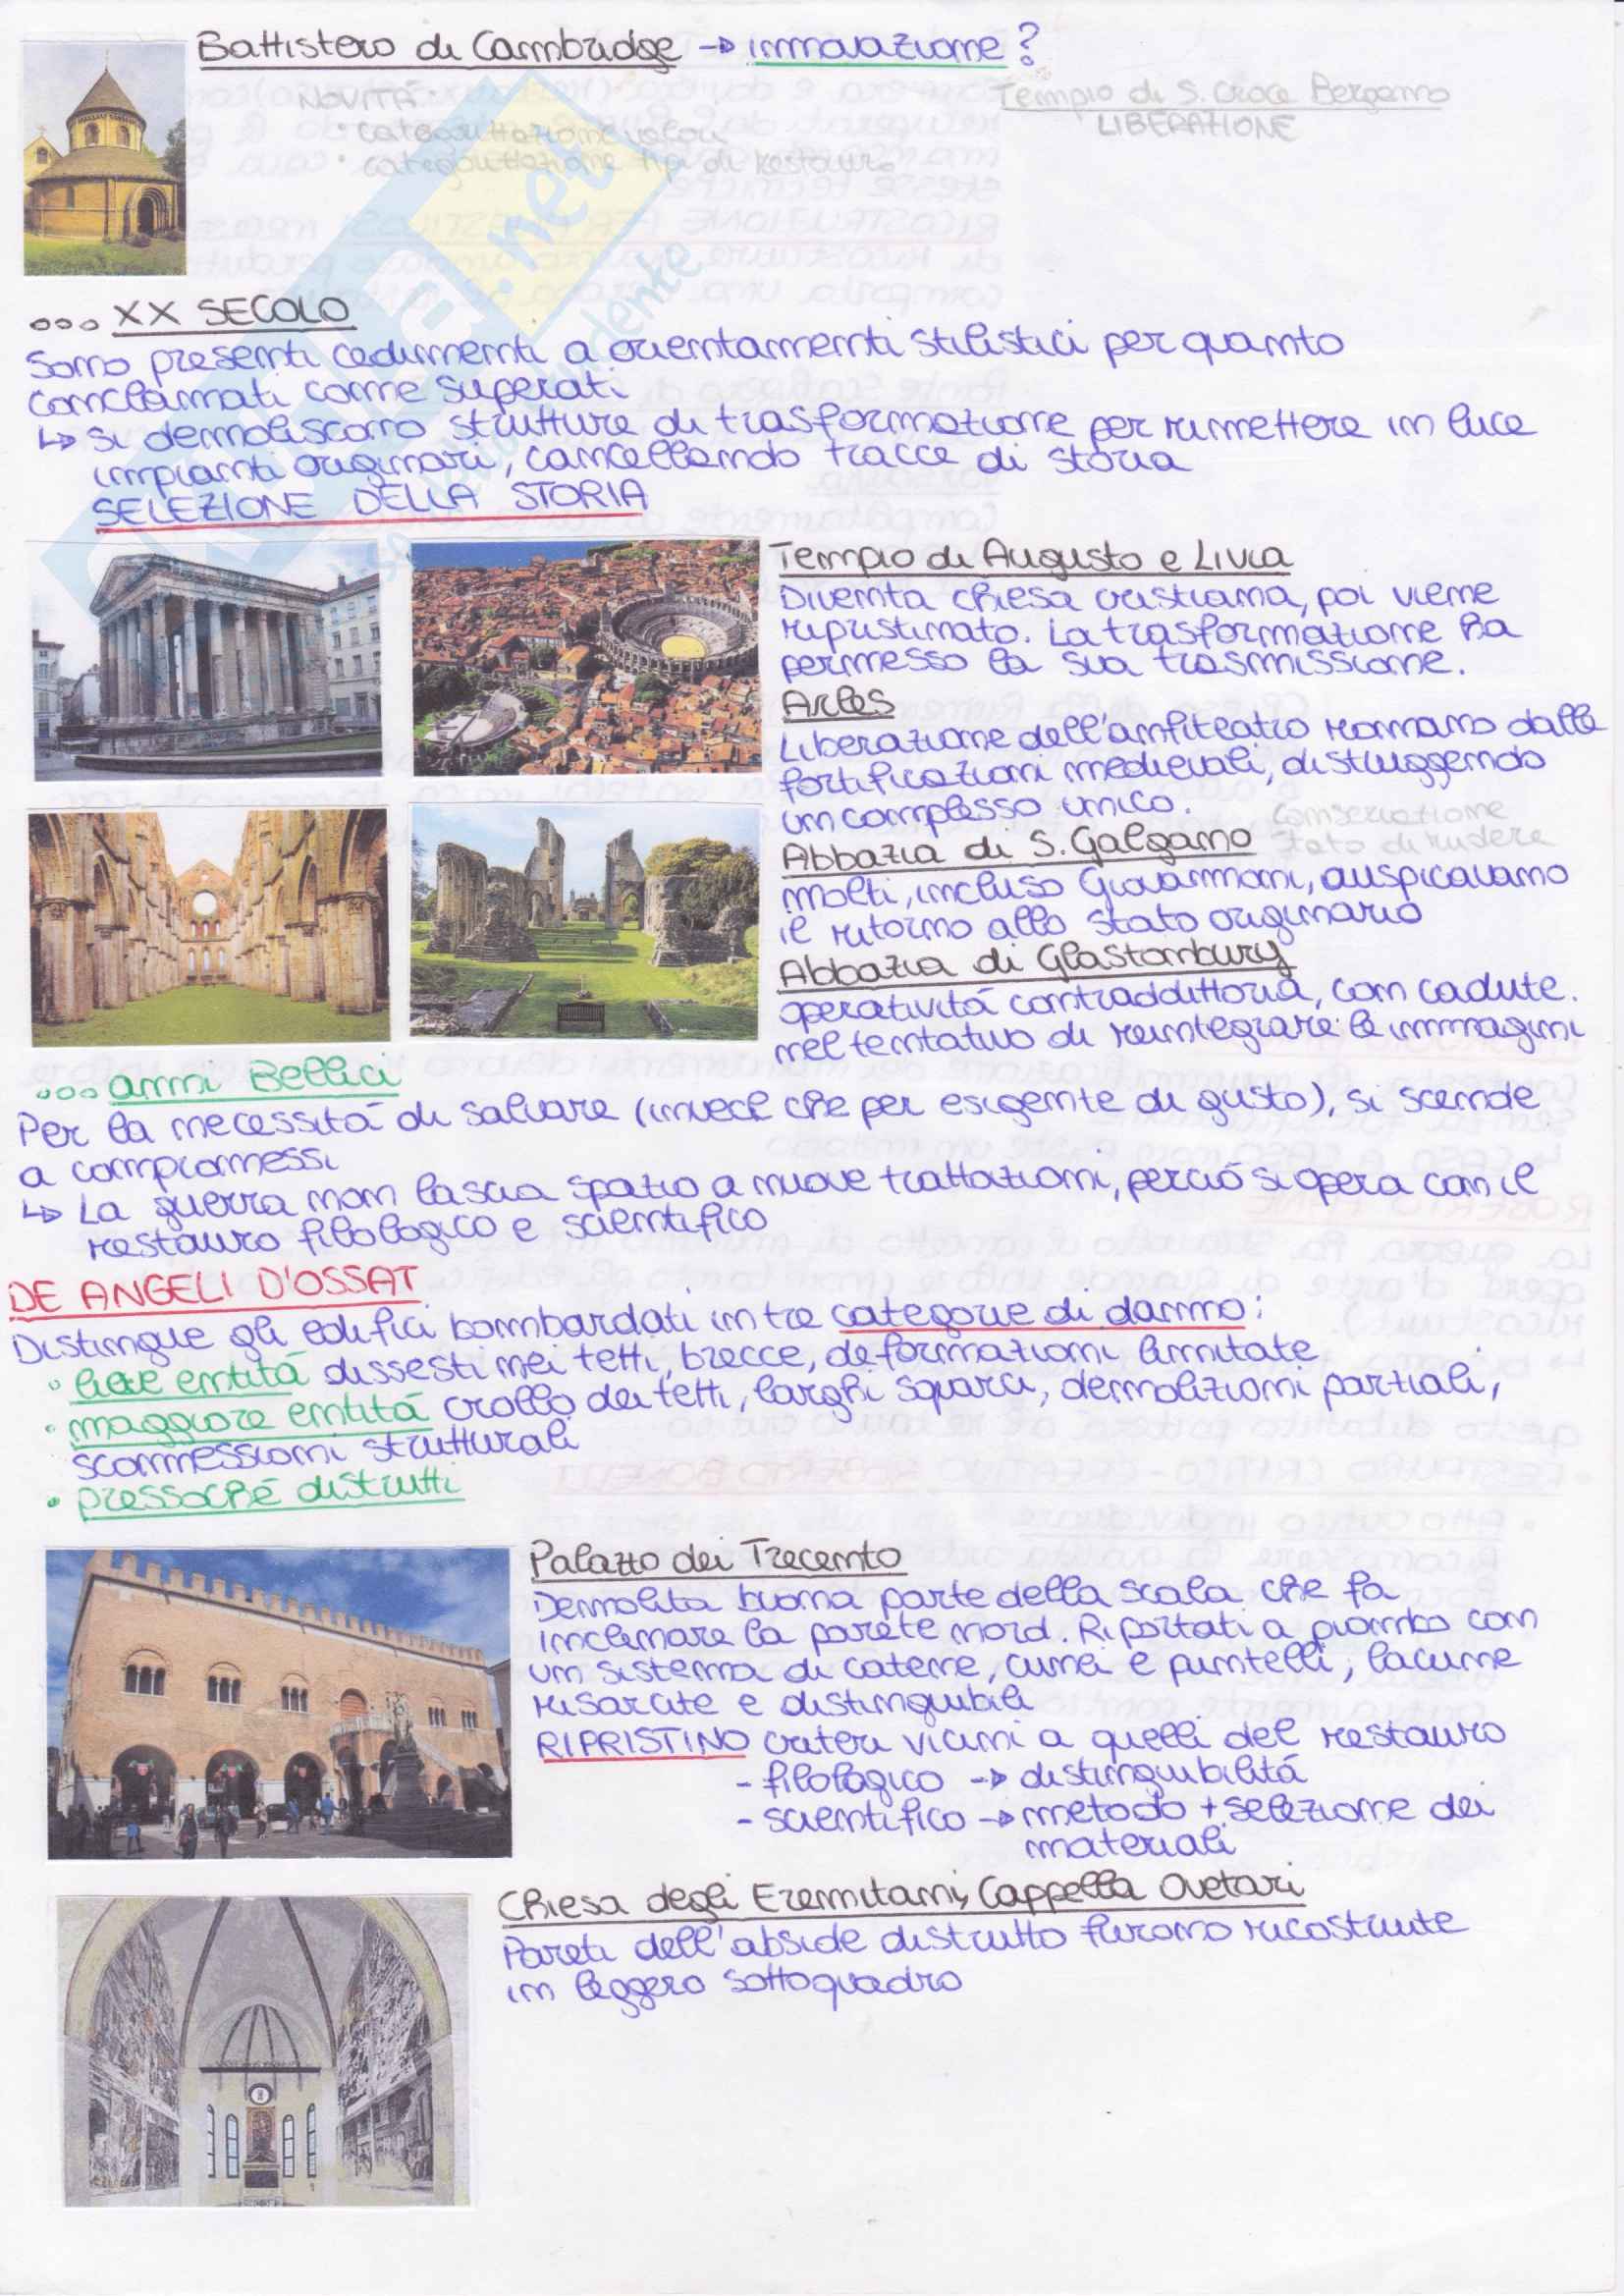 Battistero di Cambridge → innovazione?
NOVITÀ:
• categorizzazione valori
• categorizzazione tipi di restauro
Tempio di S. Croce Bergamo
LIBERAZIONE
... XX SECOLO
Sono presenti cedimenti a orientamenti stilistici per quanto
conclamati come superati
↳ si demoliscono strutture di trasformazione per rimettere in luce
impianti originari, cancellando tracce di storia
SELEZIONE DELLA STORIA
Tempio di Augusto e Livia
Diventa chiesa cristiana, poi viene
ripristinato. La trasformazione ha
permesso la sua trasmissione.
Arles
Liberazione dell'anfiteatro romano dalle
fortificazioni medievali, distruggendo
un complesso unico.
Abbazia di S. Galgano
Conservazione
stato di rudere
molti, incluso Giovannoni, auspicavano
il ritorno allo stato originario
Abbazia di Glastonbury
operatività contraddittoria, con cadute.
nel tentativo di reintegrare le immagini
... anni Bellici
Per la necessità di salvare (invece che per esigente di gusto), si scende
a compromessi
↳ La guerra non lascia spazio a nuove trattazioni, perciò si opera con il
restauro filologico e scientifico
DE ANGELI D'OSSAT
Distingue gli edifici bombardati in tre categorie di danno:
• lieve entità dissesti nei tetti, brecce, deformazioni limitate
• maggiore entità crollo dei tetti, larghi squarci, demolizioni parziali,
sconnessioni strutturali
• pressoché distrutti
Palazzo dei Trecento
Demolita buona parte della scala che fa
inclinare la parete nord. Riportati a piombo con
un sistema di catene, cunei e puntelli, lacune
risarcite e distinguibili
RIPRISTINO criteri vicini a quelli del restauro
- filologico → distinguibilità
- scientifico → metodo + selezione dei
materiali
Chiesa degli Eremitani, Cappella Ovetari
Pareti dell'abside distrutto furono ricostruite
in leggero sottoquadro